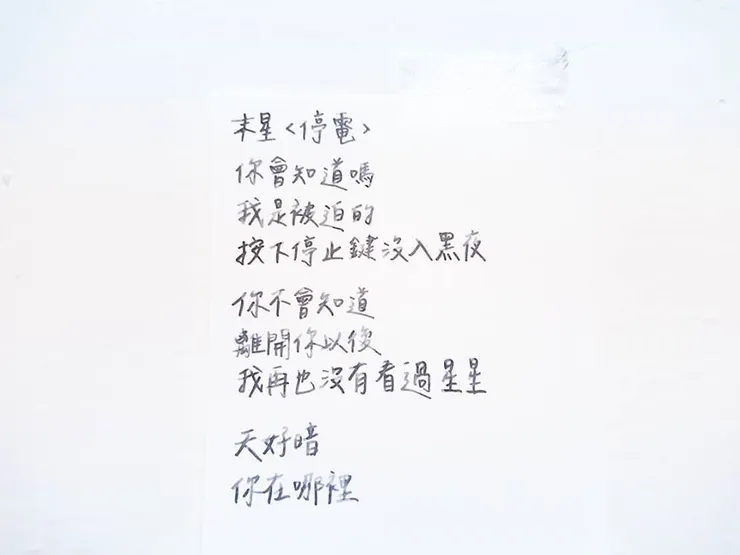 末星<停電>
你會知道嗎
我是被迫的
按下停止鍵沒入黑夜
你不會知道
離開你以後
我再也沒有看過星星
天好暗
你在哪裡